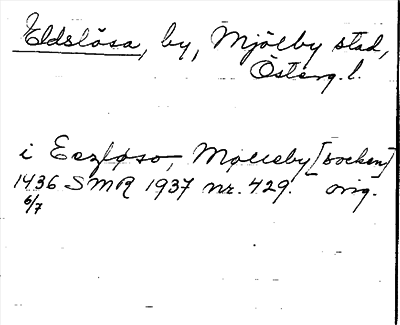 Eldslösa, by, Mjölby stad,
Österg.l.
i Eezløso, Mølleby [socken]
1436 SMR 1937 nr. 429. orig.
6/7